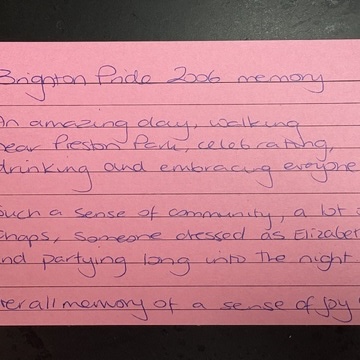 Brighton Pride 2006 memory
An amazing day, walking
near Preston Park, celebrating,
drinking and embracing everyone
Such a sense of community, a lot
chaps, someone dressed as Elizabet
and partying long into the night
overall memory of a sense of joy